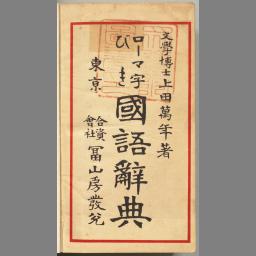 文學博士上田萬年著
ローマ字びき國語辭典
東京
合資會社冨山房發兌